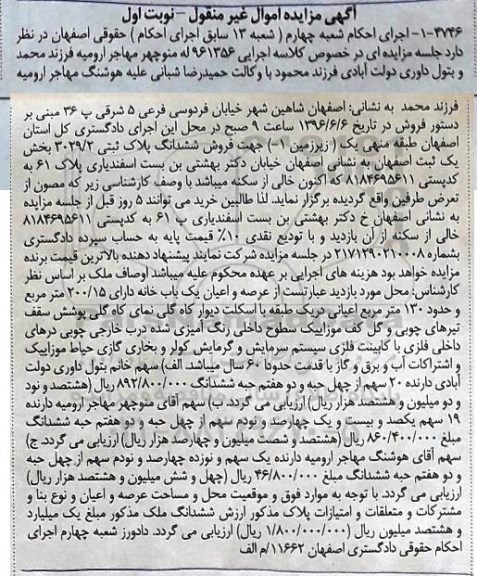 آگهی مزایده اموال غیر منقول -نوبت اول
۱-۴۷۴۶- اجرای احکام شعبه چهارم ( شعبه ۱۳ سابق اجرای احکام ) حقوقی اصفهان در نظر
دارد جلسه مزایده ای در خصوص کلاسه اجرایی ۹۶۱۳۵۶ له منوچهر مهاجر ارومیه فرزند محمد
و بتول داوری دولت آبادی فرزند محمود با وکالت حمیدرضا شبانی علیه هوشنگ مهاجر ارومیه
فرزند محمد به نشانی: اصفهان شاهین شهر خیابان فردوسی فرعی ۵ شرقی پ ۳۶ مبنی بر
دستور فروش در تاریخ ۱۳۹۶/۶/۶ ساعت ۹ صبح در محل این اجرای دادگستری کل استان
اصفهان طبقه منهی یک ( زیرزمین ۱-) جهت فروش ششدانگ پلاک ثبتی ۳۰۲۹/۲ بخش
یک ثبت اصفهان به نشانی اصفهان خیابان دکتر بهشتی بن بست اسفندیاری پلاک ۶۱ به
کدپستی ۸۱۸۴۶۹۵۶۱۱ که اکنون خالی از سکنه میباشد با وصف کارشناسی زیر که مصون از
تعرض طرفین واقع گردیده برگزار نماید. لذا طالبین خرید می توانند ۵ روز قبل از جلسه مزایده
به نشانی اصفهان خ دکتر بهشتی بن بست اسفندیاری پ ۶۱ به کدپستی ۸۱۸۴۶۹۵۶۱۱
خالی از سکنه از آن بازدید و با تودیع نقدی ۱۰٪ قیمت پایه به حساب سپرده دادگستری
بشماره ۲۱۷۱۲۹۰۲۱۰۰۰۸ در جلسه مزایده شرکت نمایند پیشنهاد دهنده بالاترین قیمت برنده
مزایده خواهد بود هزینه های اجرایی بر عهده محکوم علیه میباشد اوصاف ملک بر اساس نظر
کارشناس: محل مورد بازدید عبارتست از عرصه و اعیان یک باب خانه دارای ۲۰۰/۱۵ متر مربع
و حدود ۱۳۰ متر مربع اعیانی دریک طبقه با اسکلت دیوار کاه گلی نمای کاه گلی پوشش سقف
تیرهای چوبی و گل کف موزاییک سطوح داخلی رنگ آمیزی شده درب خارجی چوبی دربهای
داخلی فلزی با کابینت فلزی سیستم سرمایش و گرمایش کولر و بخاری گازی حیاط موزاییک
و اشتراکات آب و برق و گاز با قدمت حدودا ۶۰ سال میباشد. الف) سهم خانم بتول داوری دولت
آبادی دارنده ۲۰ سهم از چهل حبه و دو هفتم حبه ششدانگ ۸۹۲/۸۰۰/۰۰۰ ریال (هشتصد و نود
و دو میلیون و هشتصد هزار ریال) ارزیابی می گردد. ب) سهم آقای منوچهر مهاجر ارومیه دارنده
۱۹ سهم یکصد و بیست و یک چهارصد و نودم سهم از چهل حبه و دو هفتم حبه ششدانگ
مبلغ ۸۶۰/۴۰۰/۰۰۰ ریال (هشتصد و شصت میلیون و چهارصد هزار ریال) ارزیابی می گردد. ج)
سهم آقای هوشنگ مهاجر ارومیه دارنده یک سهم و نوزده چهارصد و نودم سهم از چهل حبه
و دو هفتم حبه ششدانگ مبلغ ۴۶/۸۰۰/۰۰۰ ریال (چهل و شش میلیون و هشتصد هزار ریال)
ارزیابی می گردد. با توجه به موارد فوق و موقعیت محل و مساحت عرصه و اعیان و نوع بنا و
مشترکات و متعلقات و امتیازات پلاک مذکور ارزش ششدانگ ملک مذکور مبلغ یک میلیارد
و هشتصد میلیون ریال (۱/۸۰۰/۰۰۰/۰۰۰ ریال) ارزیابی می گردد. دادورز شعبه چهارم اجرای
احکام حقوقی دادگستری اصفهان ۱۱۶۶۲/م الف